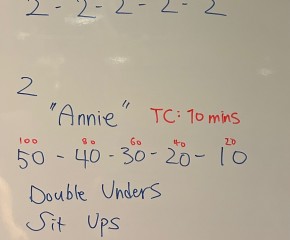 2 - 2 - 2 - 2 - 2
2
"Annie" TC: 10 mins
100 80 60 40 20
50 - 40 - 30 - 20 - 10
Double Unders
Sit Ups